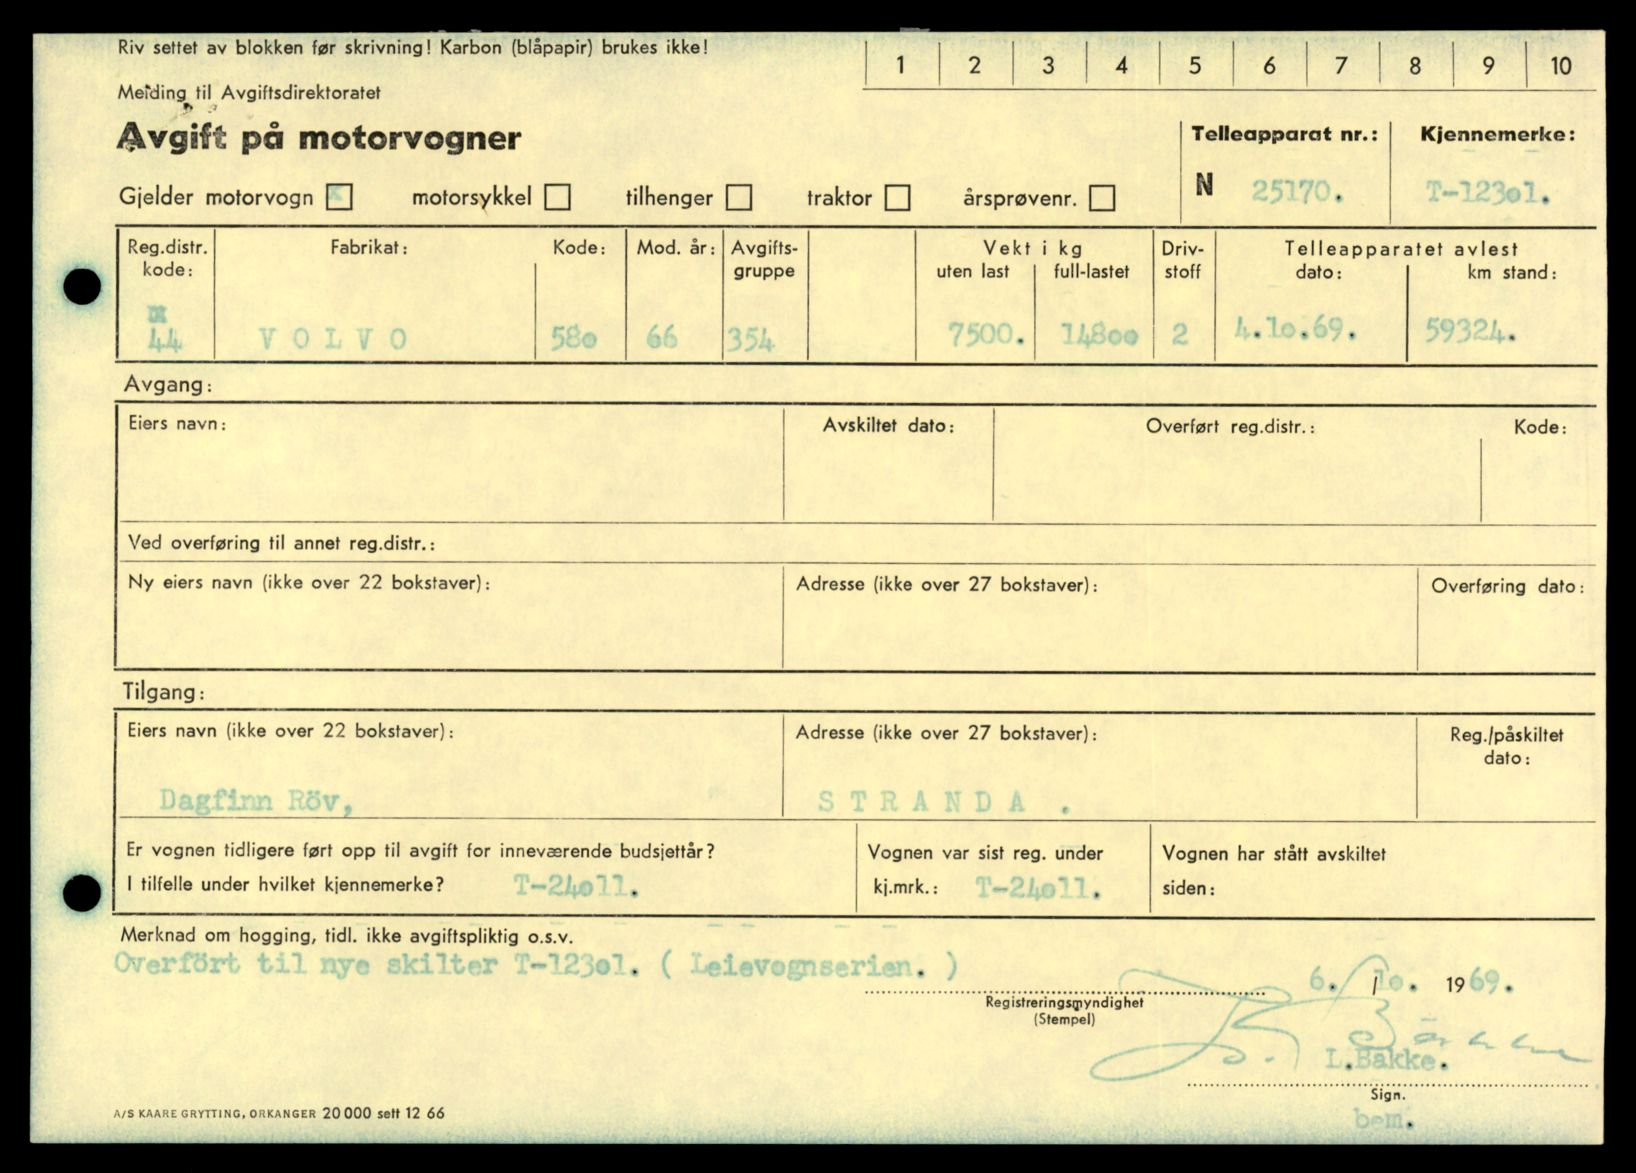 Riv settet av blokken før skrivning! Karbon (blåpapir) brukes ikke!
1 2 3 4 5 6 7 8 9 10
Melding til Avgiftsdirektoratet
Avgift på motorvogner
Telleapparat nr.: Kjennemerke:
N 25170. T-12301.
Gjelder motorvogn x motorsykkel tilhenger traktor årsprøvenr.
Reg.distr. kode: Fabrikat: Kode: Mod. år: Avgifts-gruppe Vekt i kg uten last full-lastet Driv-stoff Telleapparatet avlest dato: km stand:
44 VOLVO 580 66 354 7500. 14800 2 4.10.69. 59324.
Avgang:
Eiers navn: Avskiltet dato: Overført reg.distr.: Kode:
Ved overføring til annet reg.distr.:
Ny eiers navn (ikke over 22 bokstaver): Adresse (ikke over 27 bokstaver): Overføring dato:
Tilgang:
Eiers navn (ikke over 22 bokstaver): Adresse (ikke over 27 bokstaver): Reg./påskiltet dato:
Dagfinn Röv, STRANDA .
Er vognen tidligere ført opp til avgift for inneværende budsjettår? Vognen var sist reg. under Vognen har stått avskiltet
I tilfelle under hvilket kjennemerke? T-24011. kj.mrk.: T-24011. siden:
Merknad om hogging, tidl. ikke avgiftspliktig o.s.v.
Overfört til nye skilter T-12301. ( Leievognserien. )
6. /10. 1969.
Registreringsmyndighet
(Stempel)
L. Bakke
L.Bakke.
Sign.
bem.
A/S KAARE GRYTTING, ORKANGER 20 000 sett 12 66